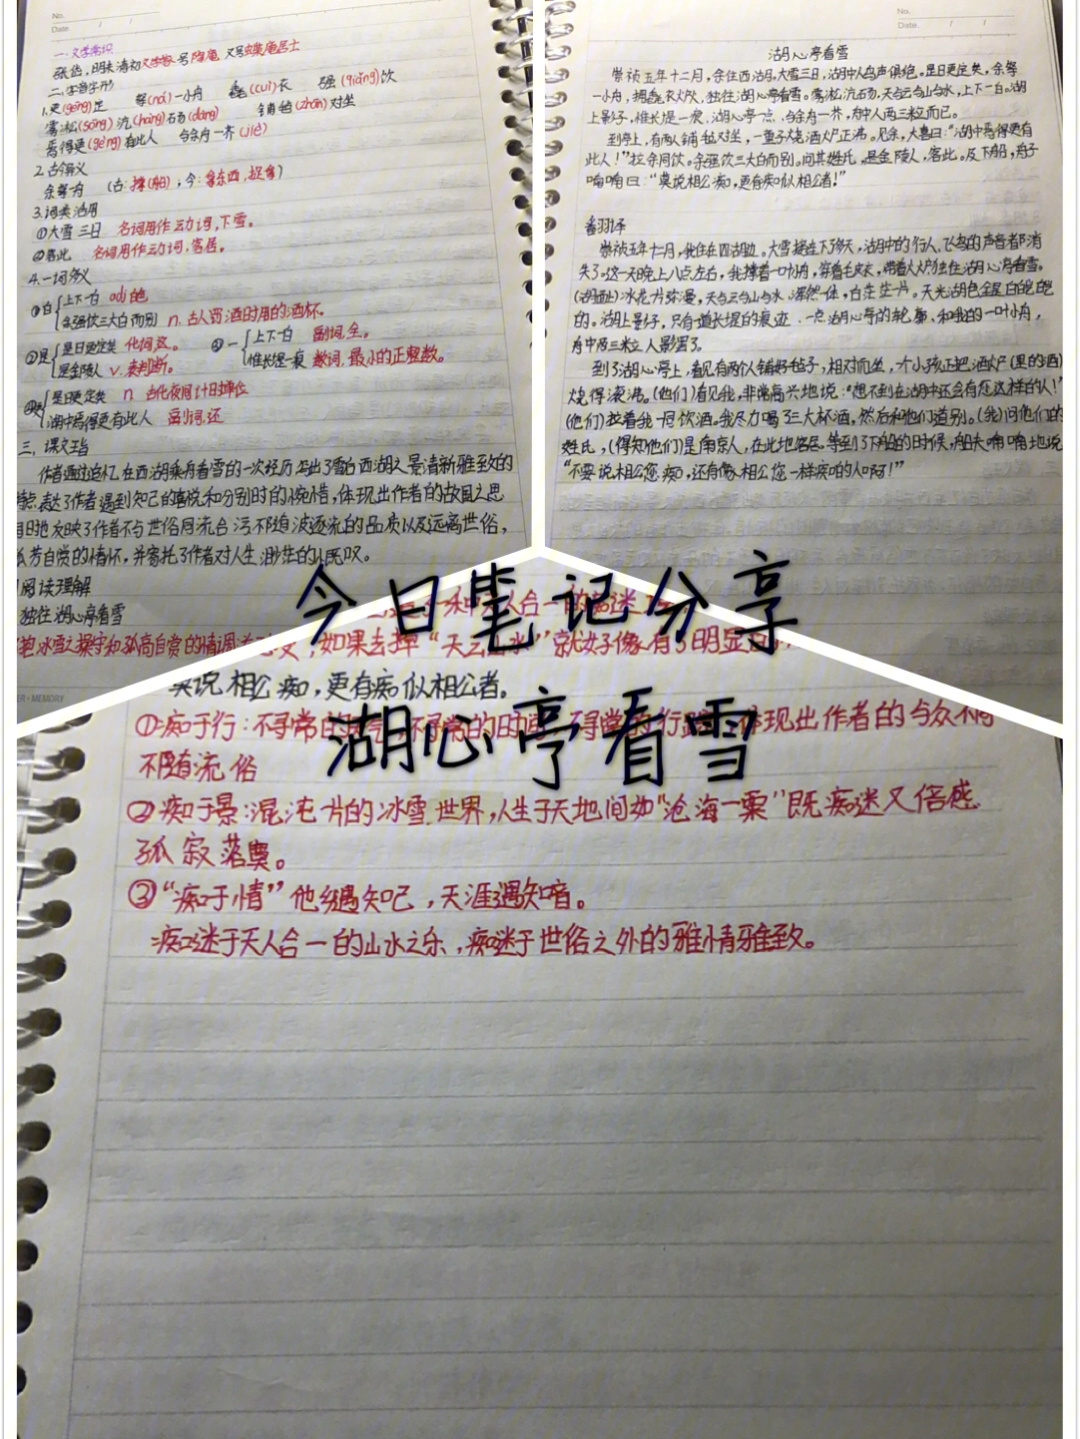 No.
Date
一.文学常识
张岱,明末清初文学家.号陶庵 又号蝶庵居士
二.字音字形
1.更(gēng)定 拏(ná)一小舟 毳(cuì)衣 强(qiǎng)饮
雾凇(sōng)沆(hàng)砀(dàng) 铺毡(zhān)对坐
焉得更(gèng)有此人 与余舟一芥(jiè)
2.古今异义
余拏舟 (古:撑(船);今:拿东西,捉拿)
3.词类活用
①大雪三日 名词用作动词,下雪。
②客此 名词用作动词,客居。
4.一词多义
①白{上下一白 adj 白色
余强饮三大白而别 n.古人罚酒时用的酒杯。
②是{是日更定矣 代词,这。
是金陵人 v.表判断。
③一{上下一白 副词,全。
惟长堤一痕 数词,最小的正整数。
④更{是日更定矣 n 古代夜间计时单位
湖中焉得更有此人 副词,还
三.课文主旨
作者通过追忆在西湖乘舟看雪的一次经历,写出了雪后西湖之景清新雅致的
特点,表达了作者遇到知己的喜悦和分别时的惋惜,体现出作者的故国之思
同时也反映了作者不与世俗同流合污不随波逐流的品质以及远离世俗,
孤芳自赏的情怀,并寄托了作者对人生渺茫的慨叹。
阅读理解
独往湖心亭看雪
抱冰雪之操守和孤高自赏的情调
No.
Date.
湖心亭看雪
崇祯五年十二月,余住西湖.大雪三日,湖中人鸟声俱绝。是日更定矣,余拏
一小舟,拥毳衣炉火,独往湖心亭看雪。雾凇沆砀,天与云与山与水,上下一白。湖
上影子,惟长堤一痕、湖心亭一点、与余舟一芥,舟中人两三粒而已。
到亭上,有两人铺毡对坐,一童子烧酒炉正沸。见余,大喜曰:“湖中焉得更有
此人!”拉余同饮。余强饮三大白而别。问其姓氏,是金陵人,客此。及下船,舟子
喃喃曰:“莫说相公痴,更有痴似相公者!”
翻译
崇祯五年十二月,我住在西湖边。大雪接连下了多天,湖中的行人、飞鸟的声音都消
失了。这一天晚上八点左右,我撑着一叶小舟,穿着毛皮衣,带着火炉独往湖心亭看雪。
(湖面上)冰花一片弥漫,天与云与山与水,浑然一体,白茫茫一片。天光湖色全是白皑皑
的。湖上影子,只有一道长堤的痕迹、一点湖心亭的轮廓、和我的一叶小舟,
舟中两三粒人影罢了。
到了湖心亭上,看见有两个人铺好毡子,相对而坐,一个小孩正把酒炉(里的酒)
烧得滚沸。(他们)看见我,非常高兴地说:“想不到在湖中还会有您这样的人!”
(他们)拉着我一同饮酒。我尽力喝了三大杯酒,然后和他们道别。(我)问他们的
姓氏,(得知他们)是南京人,在此地客居.等到了下船的时候,船夫喃喃地说
“不要说相公您痴,还有像相公您一样痴的人啊!”
今日笔记分享
湖心亭看雪
人合一的
如果去掉“天云山水”就好像有了明显
莫说相公痴,更有痴似相公者。
①痴于行:不寻常的天气,不寻常的时间,不寻常的行踪,体现出作者的与众不同
不随流俗
②痴于景:混沌一片的冰雪世界,人生于天地间如“沧海一粟”既痴迷又倍感
孤寂落寞。
③“痴于情”他乡遇知己,天涯遇知音。
痴迷于天人合一的山水之乐,痴迷于世俗之外的雅情雅致。